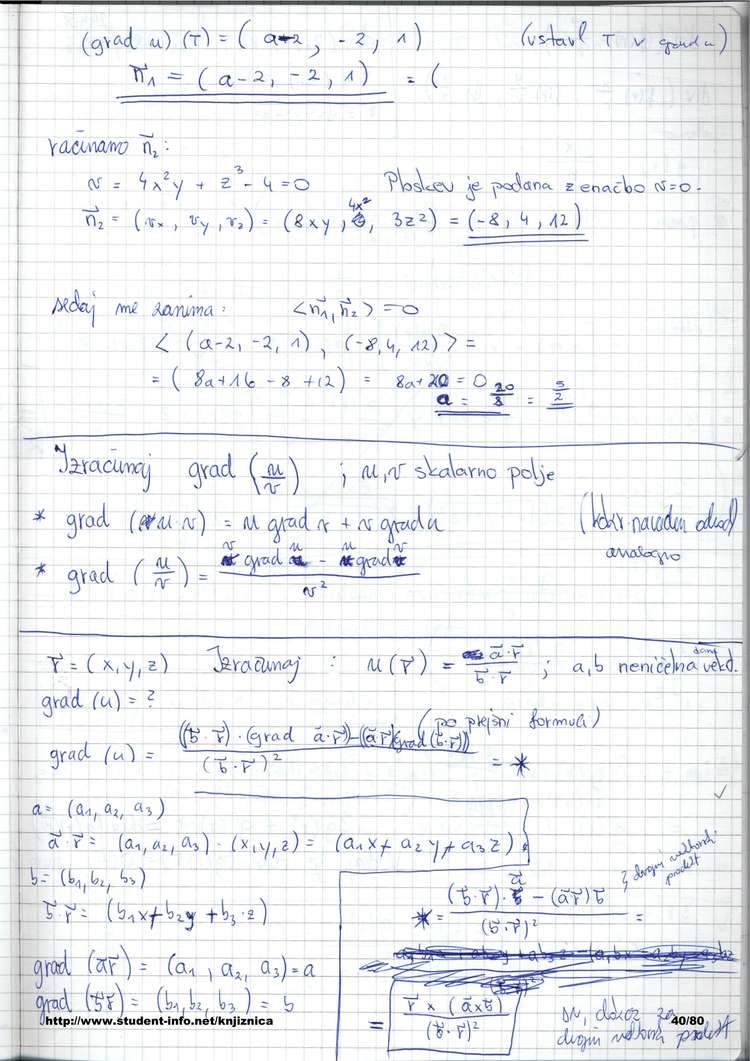 (grad u) (T) = ( a-2 , -2 , 1 ) (vstavi T v grad u)
n⃗₁ = ( a-2 , -2 , 1 ) = (
računamo n⃗₂ :
v = 4x²y + z³ - 4 = 0 Ploskev je podana z enačbo v=0.
n⃗₂ = (vx , vy , vz) = (8xy , 4x² , 3z²) = (-8 , 4 , 12)
sedaj me zanima : <n⃗₁, n⃗₂> = 0
< (a-2, -2, 1) , (-8, 4, 12) > =
= ( 8a+16 - 8 + 12) = 8a+20 = 0
a = 20/8 = 5/2
Izračunaj grad (u/v) ; u, v skalarno polje
* grad (u·v) = u grad v + v grad u
analogno
* grad (u/v) = (v grad u - u grad v) / v²
r⃗ = (x, y, z) Izračunaj : u(r⃗) = (a⃗·r⃗) / (b⃗·r⃗) ; a, b neničelna dana vekt.
grad (u) = ?
(po prejšni formuli)
grad (u) = ((b⃗·r⃗)·(grad a⃗·r⃗) - (a⃗·r⃗)(grad (b⃗·r⃗))) / (b⃗·r⃗)² = *
a = (a₁, a₂, a₃)
a⃗·r⃗ = (a₁, a₂, a₃) · (x, y, z) = (a₁x + a₂y + a₃z)
b = (b₁, b₂, b₃)
b⃗·r⃗ = (b₁x + b₂y + b₃·z)
grad (a⃗r⃗) = (a₁, a₂, a₃) = a
grad (b⃗r⃗) = (b₁, b₂, b₃) = b
* = ((b⃗·r⃗)·a⃗ - (a⃗r⃗)b⃗) / (b⃗·r⃗)² =
dvojni vektorski produkt
= (r⃗ × (a⃗×b⃗)) / (b⃗·r⃗)²
dokaz za
dvojni vektorski produkt
http://www.student-info.net/knjiznica
40/80